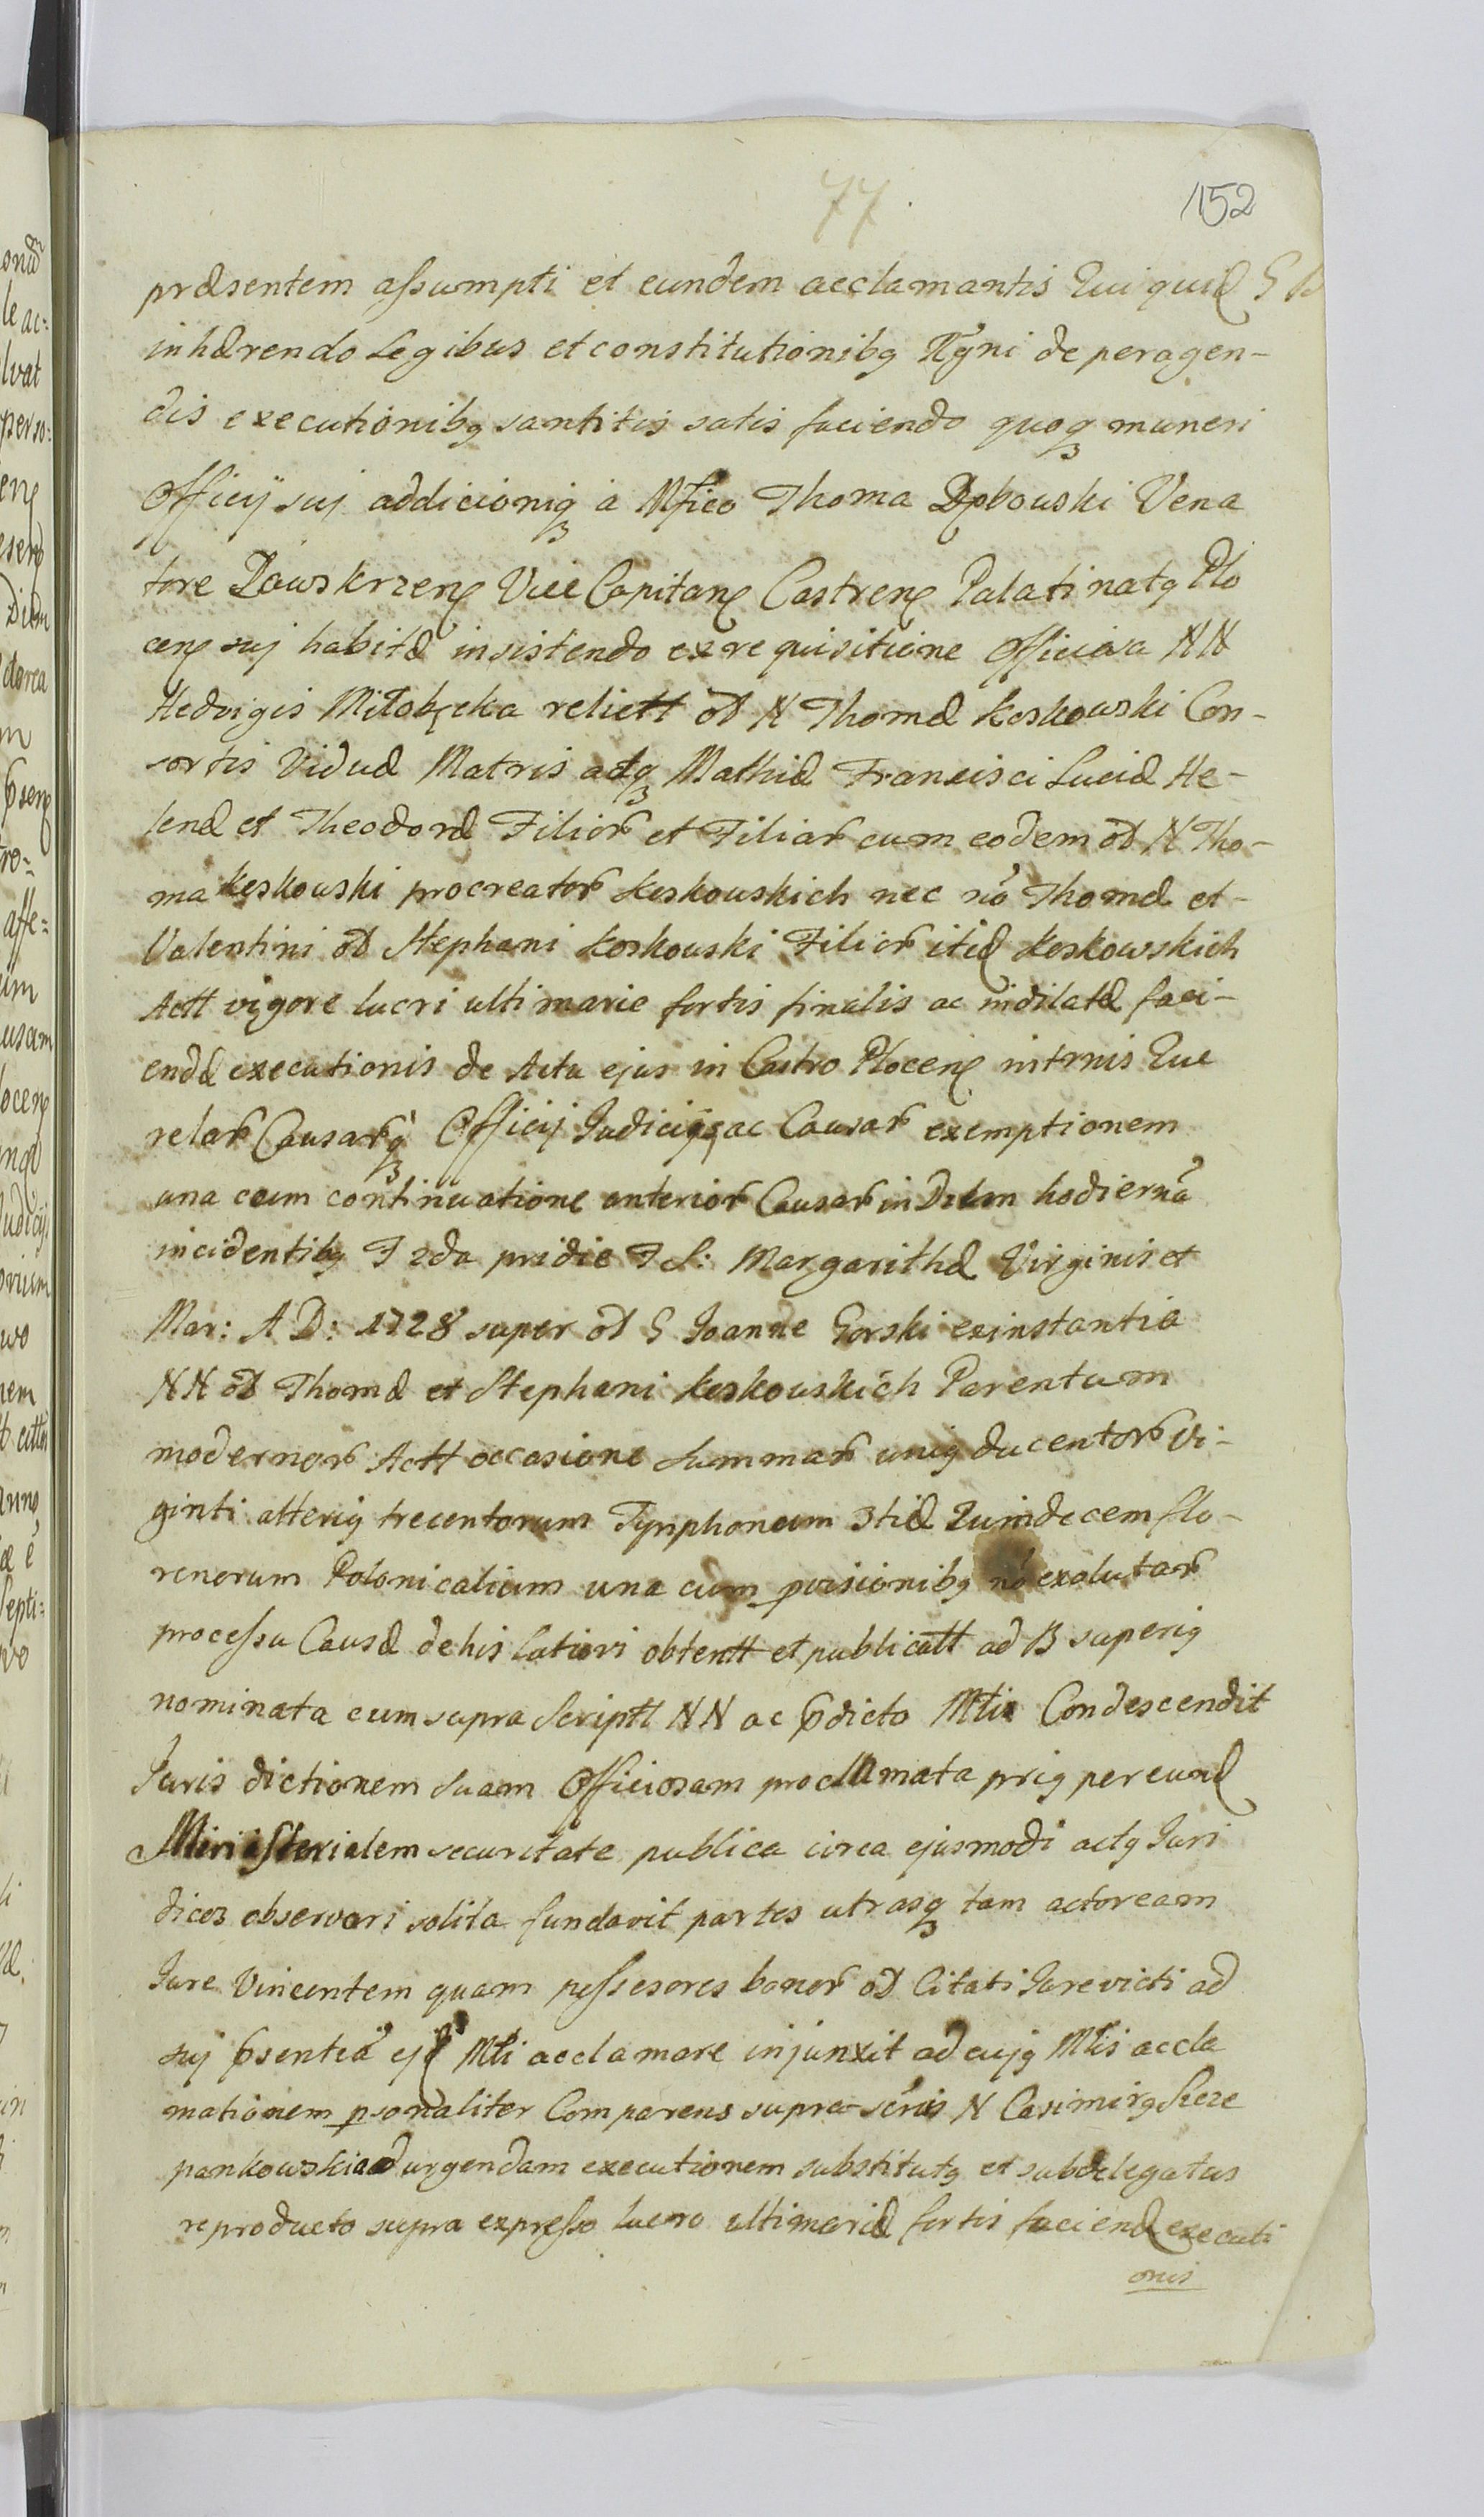 77.
152
præsentem assumpti et eundem acclamantis Qui quid G B
inhærendo Legibus et constitutionibq Rgni de peragen-
dis executionibq santitis satis faciendo quoq muneri
Officij suj addicioniq a Mfico Thoma Dębowski Vena
tore Zawskrzen Vice Capitan Castren Palatinatq Plo
cen suj habitæ insistendo ex requisitione Officiosa NN
Hedvigis Miłobęcka relictt od N Thomæ Koskowski Con-
sortis Viduæ Matris atq Mathiæ Francisci Luciæ He-
lenæ et Theodoræ Filior et Filiar cum eodem od N Tho-
ma Koskowski procreator Koskowskich nec nō Thomæ et
Valentini od Stephani Koskowski Filior itid Koskowskich
Actt vigore lucri ultimarie fortis finalis ac indilatæ faci-
endæ executionis de Actu ejus in Castro Plocen intrnis Que
relar Causarq Officij Judicijsq ac Causar exemptionem
una cum continuatione anterior Causar in Diem hodiernā
incidentibq F 2da pridie F S: Margarithæ Virginis et
Mar: A D: 1728 super od G Joanne Gorski exinstantia
NN od Thomæ et Stephani Koskowskich Parentum
modernor Actt occasione Summar uniq ducentor Vi-
ginti alteriq trecentorum Tynphonum 3tiæ Quindecem flo-
renorum Polonicalium una cum pvisionibq nō exolutar
processu Causæ de his Latiori obtentt et publicatt ad B superiq
nominata cum supra Scriptt NN ac pdicto Mtli Condescendit
Juris dictionem Suam Officiosam proclamata priq per eund
Ministerialem securitate publica circa ejusmodi actq Juri
dicos observari solita fundavit partes utrasq tam actoream
Jure Vincentem quam possesores bonor od Citati Jure victi ad
suj psentiā ejd Mtli acclamare injunxit ad cujq Mtlis accla
mationem psonaliter Comparens supra-scris N Casimirq Szcze
pankowski ad urgendam executionem substitutq et subdelegatus
reproducto supra expresso lucro ultimariæ fortis faciend executi
onis